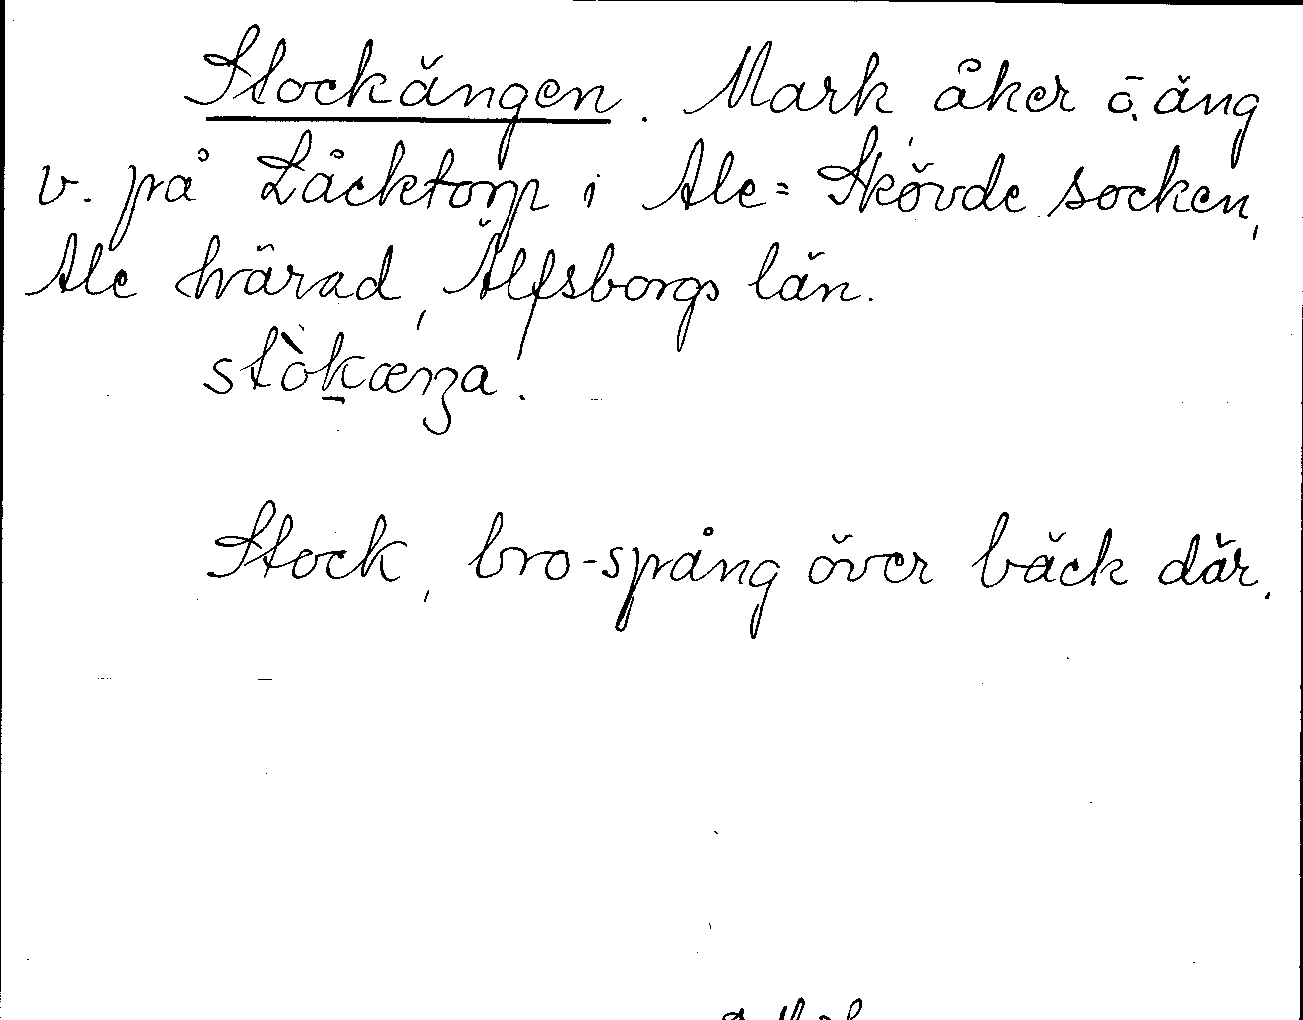 Stockängen. Mark åker o. äng
v. på Låcktorp i Ale-Skövde socken,
Ale härad, Älfsborgs län.
stòkæŋa.
Stock, bro-spång över bäck där.